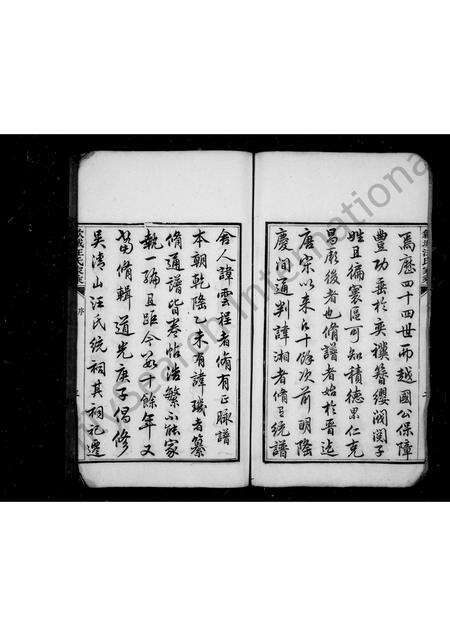 焉歷四十四世而越國公保障
豐功垂於奕禩簪纓閥閱子
姓且徧寰區可知積德累仁克
昌厥後者也脩譜者始於晉迄
唐宋以來凡十餘次前明隆
慶間通判諱湘者脩有統譜
舍人諱雲程者脩有正脉譜
本朝乾隆乙未有諱璣者纂
脩通譜皆卷帙浩繁不能家
執一編且距今 十餘年又
當脩輯 道光庚子倡修
吳清山汪氏統祠其祠記遷
序
MySearch International